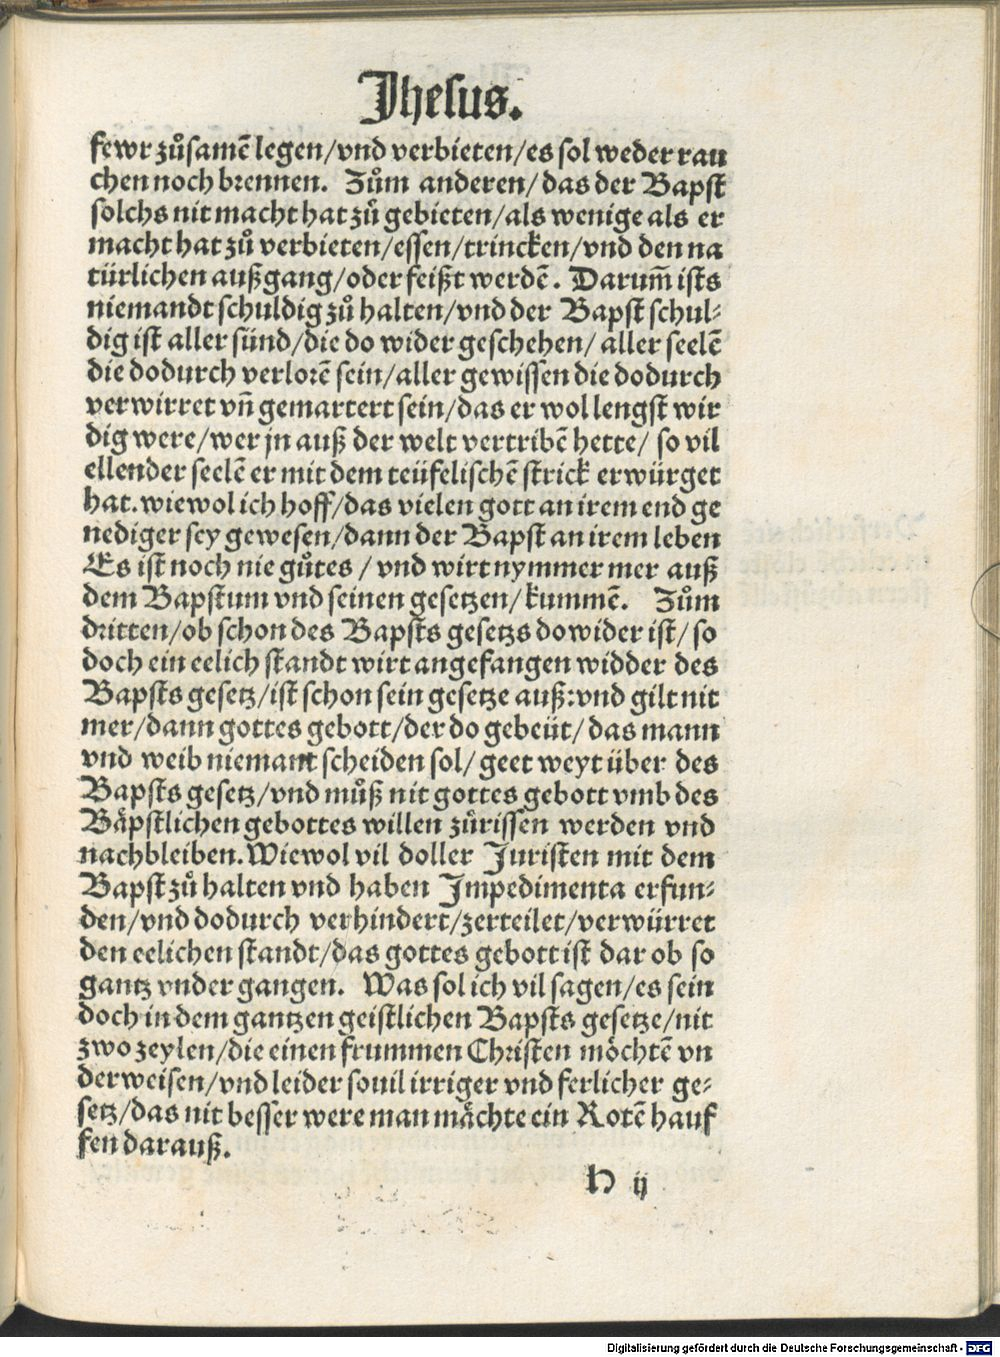 Jhesus.
fewr zůsamē legen/vnd verbieten/es sol weder rau
chen noch brennen. Zům anderen/das der Bapst
solchs nit macht hat zů gebieten/als wenige als er
macht hat zů verbieten/essen/trincken/vnd den na
türlichen außgang/oder feißt werdē. Darum̄ ists
niemandt schuldig zů halten/vnd der Bapst schul⸗
dig ist aller sünd/die do wider geschehen/ aller seelē
die dodurch verlorē sein/aller gewissen die dodurch
verwirret vn̄ gemartert sein/das er wol lengst wir
dig were/wer jn auß der welt vertribē hette/ so vil
ellender seelē er mit dem teüfelischē strick erwürget
hat. wiewol ich hoff/das vielen gott an irem end ge
nediger sey gewesen/dann der Bapst an irem leben
Es ist noch nie gůtes / vnd wirt nymmer mer auß
dem Bapstum vnd seinen gesetzen/kummē. Zům
dritten/ob schon des Bapsts gesetzs dowider ist/ so
doch ein eelich standt wirt angefangen widder des
Bapsts gesetz/ist schon sein gesetze auß:vnd gilt nit
mer/dann gottes gebott/der do gebeüt/ das mann
vnd weib niemant scheiden sol/ geet weyt über des
Bapsts gesetz/vnd můß nit gottes gebott vmb des
Bäpstlichen gebottes willen zůrissen werden vnd
nachbleiben. Wiewol vil doller Juristen mit dem
Bapst zů halten vnd haben Impedimenta erfun⸗
den/vnd dodurch verhindert/zerteilet/verwürret
den eelichen standt/das gottes gebott ist dar ob so
gantz vnder gangen. Was sol ich vil sagen/es sein
doch in dem gantzen geistlichen Bapsts gesetze/nit
zwo zeylen/die einen frummen Christen möchtē vn
derweisen/vnd leider souil irriger vnd ferlicher ge⸗
setz/das nit besser were man mächte ein Rotē hauf
fen darauß.
h ij
Digitalisierung gefördert durch die Deutsche Forschungsgemeinschaft - DFG